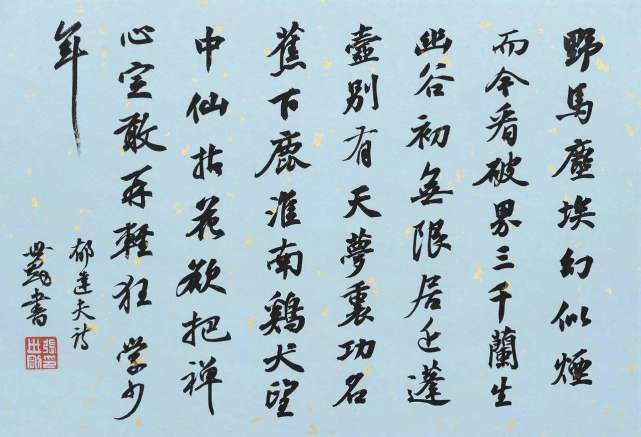 野馬塵埃幻似煙
而今看破界三千蘭生
幽谷初無限居近蓬
壺別有天夢裏功名
蕉下鹿淮南鷄犬望
中仙拈花欲把禪
心定敢再輕狂學少
年
郁達夫詩
世剛書